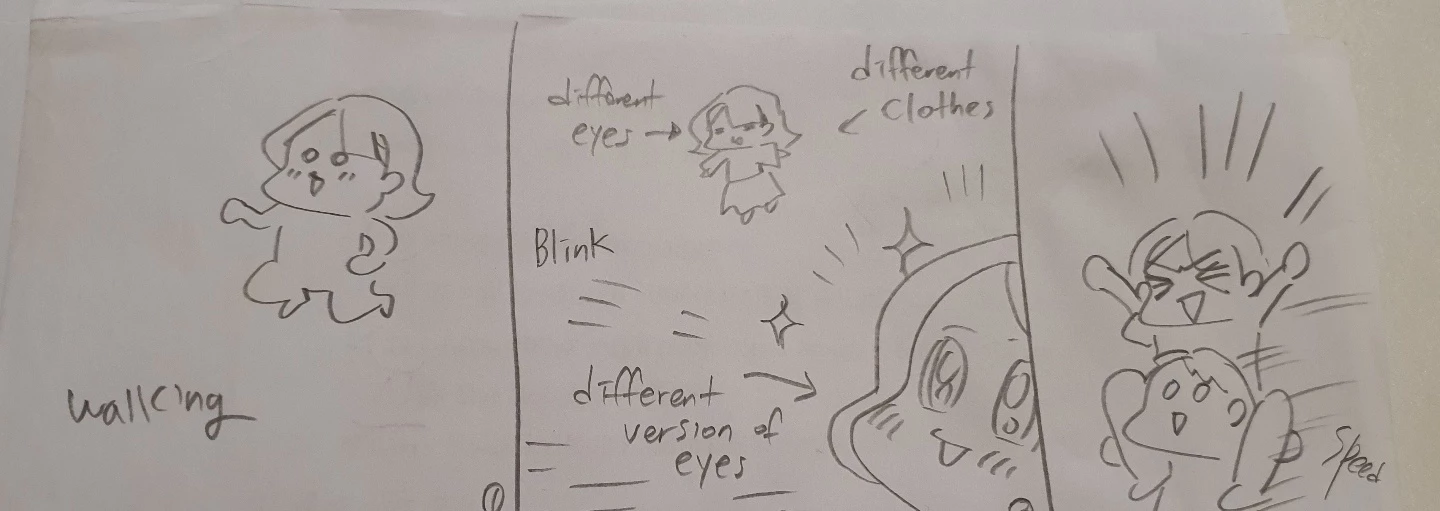 walking
different
eyes →
different
clothes
←
Blink
different →
version of
eyes
①
Speed